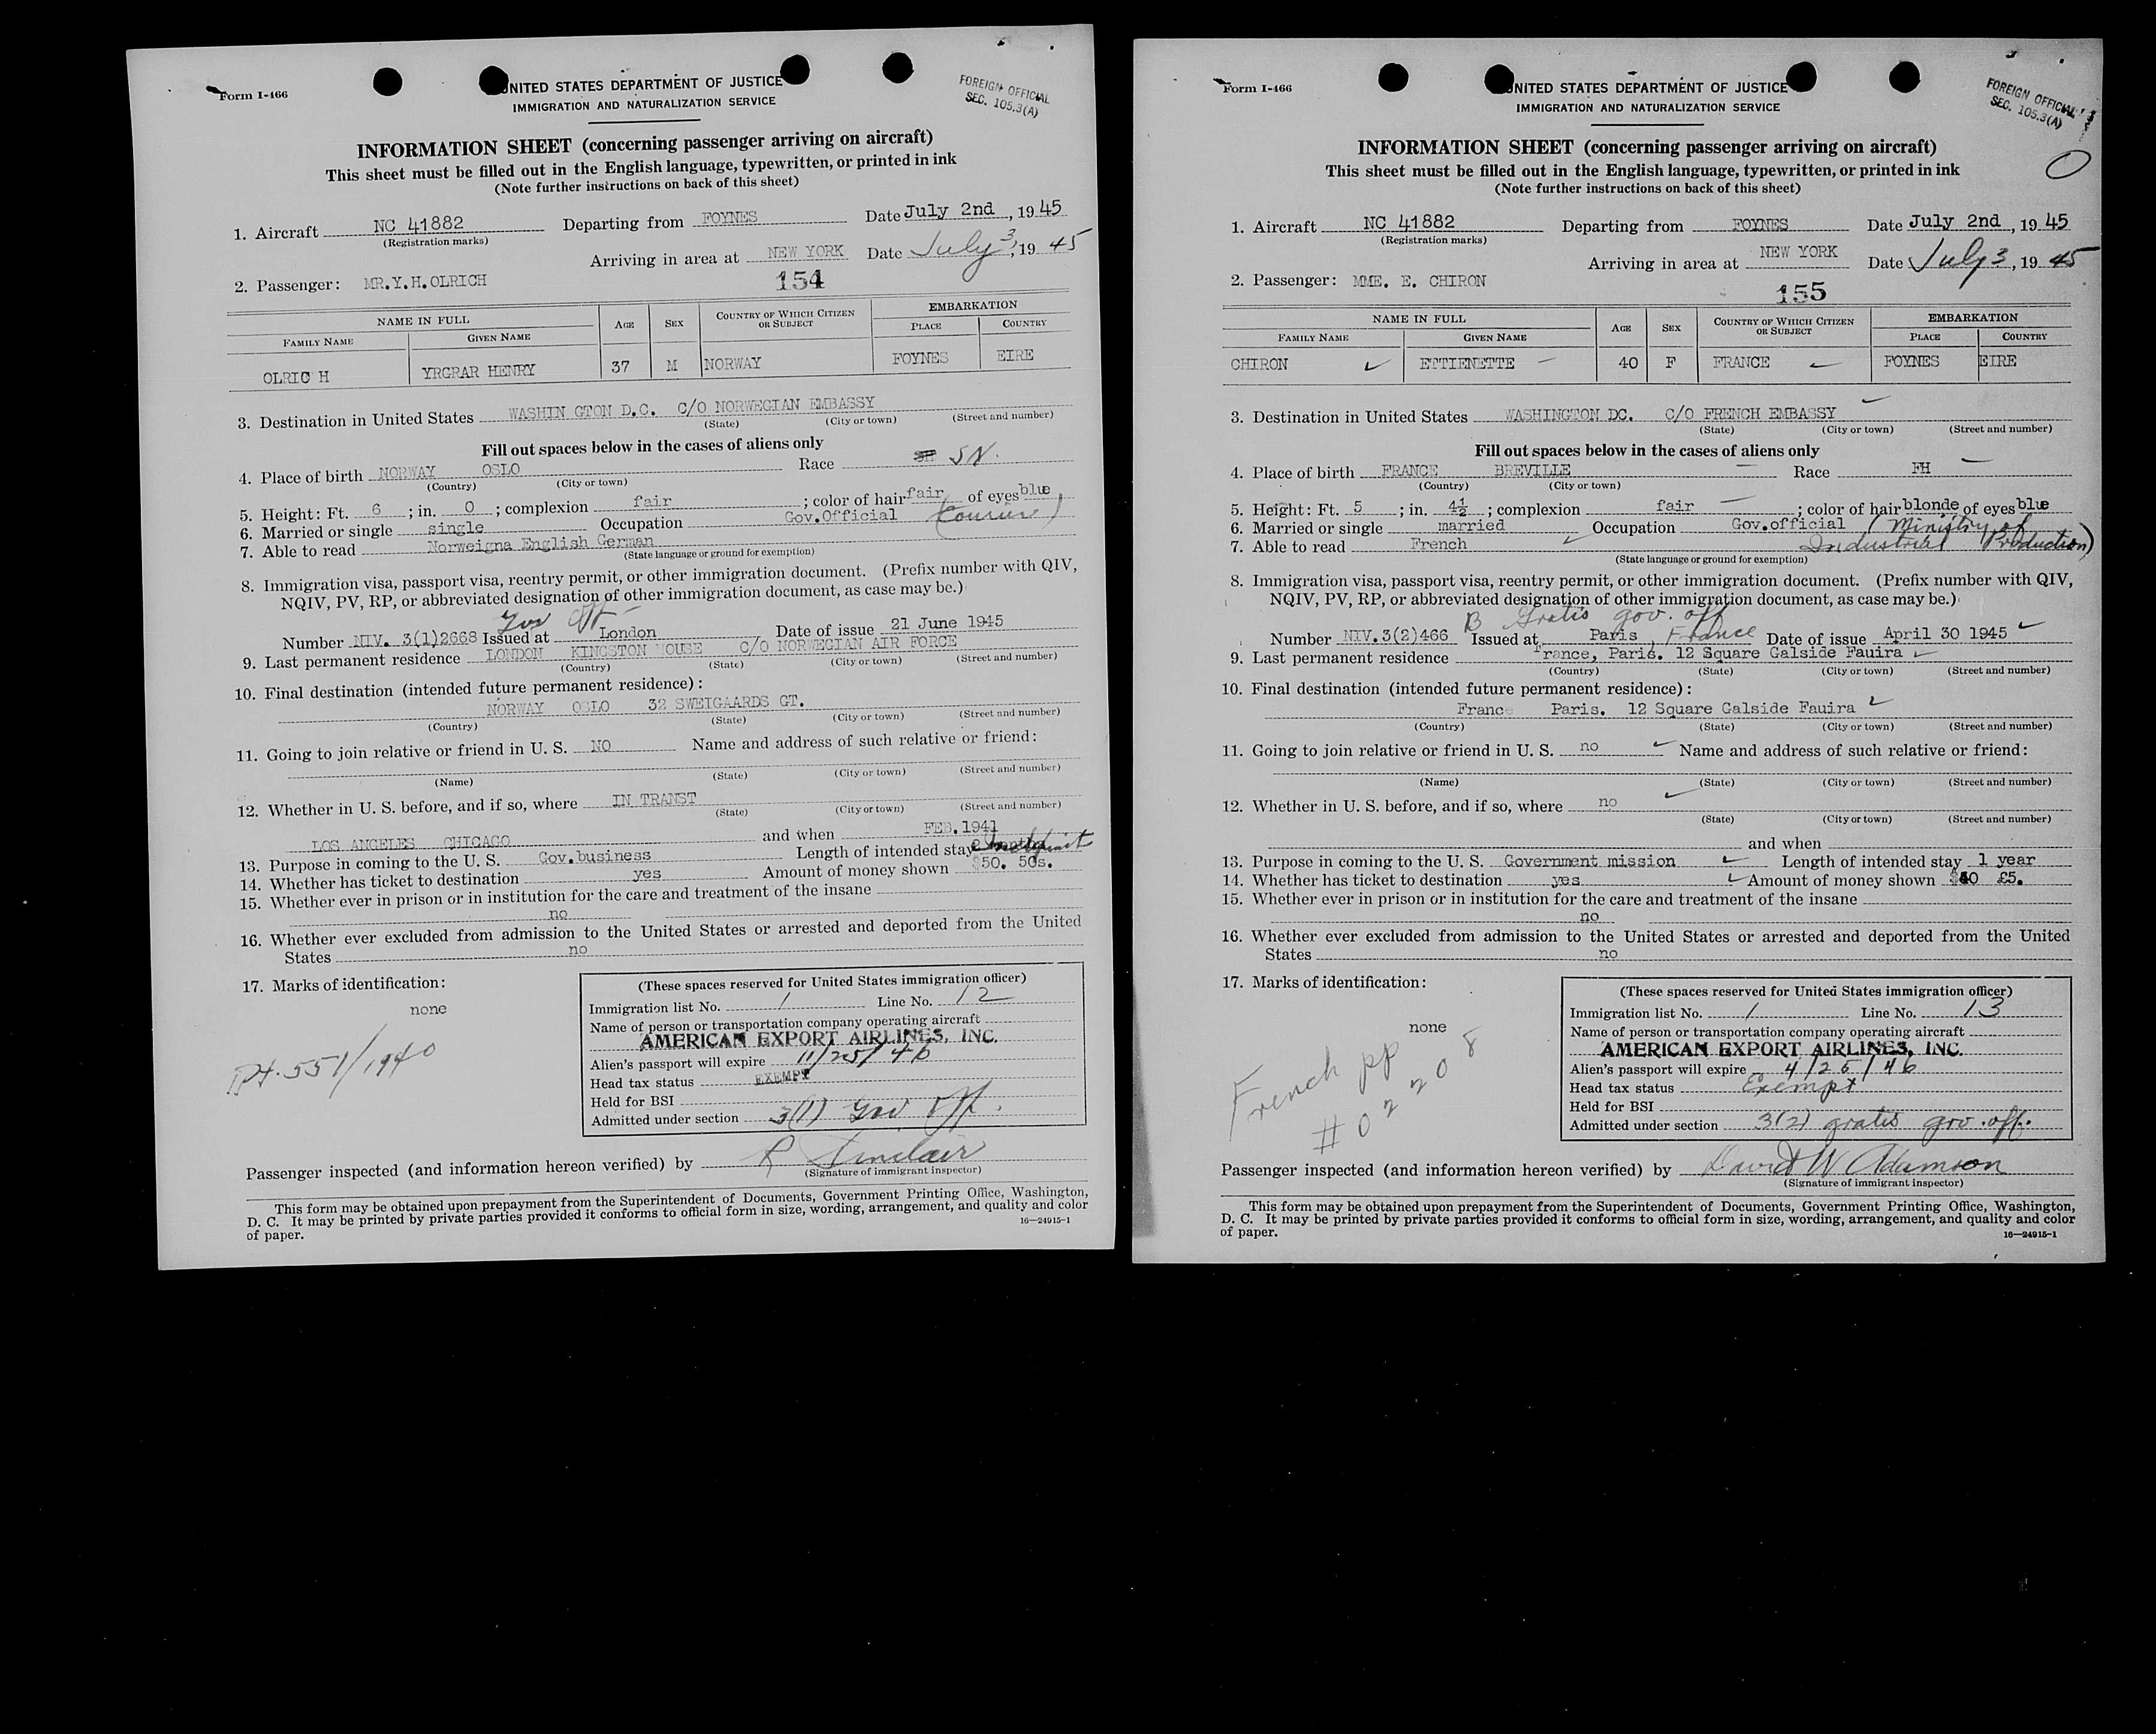 Form I-466
UNITED STATES DEPARTMENT OF JUSTICE
IMMIGRATION AND NATURALIZATION SERVICE
FOREIGN OFFICIAL
SEC. 105.3(A)
INFORMATION SHEET (concerning passenger arriving on aircraft)
This sheet must be filled out in the English language, typewritten, or printed in ink
(Note further instructions on back of this sheet)
1. Aircraft NC 41882 Departing from FOYNES Date July 2nd, 1945
(Registration marks)
Arriving in area at NEW YORK Date July 3, 1945
2. Passenger: MR.Y.H.OLRICH 154
NAME IN FULL AGE SEX COUNTRY OF WHICH CITIZEN OR SUBJECT EMBARKATION
FAMILY NAME GIVEN NAME PLACE COUNTRY
OLRIC H YRGRAR HENRY 37 M NORWAY FOYNES EIRE
3. Destination in United States WASHIN GTON D.C. C/O NORWEGIAN EMBASSY
(State) (City or town) (Street and number)
Fill out spaces below in the cases of aliens only
4. Place of birth NORWAY OSLO Race SN.
(Country) (City or town)
5. Height: Ft. 6 ; in. 0 ; complexion fair ; color of hair fair of eyes blue
6. Married or single single Occupation Gov.Official (Courier)
7. Able to read Norweigna English German
(State language or ground for exemption)
8. Immigration visa, passport visa, reentry permit, or other immigration document. (Prefix number with QIV,
NQIV, PV, RP, or abbreviated designation of other immigration document, as case may be.)
Gov Off
Number NIV. 3(1)2668 Issued at London Date of issue 21 June 1945
9. Last permanent residence LONDON KINGSTON HOUSE C/O NORWEGIAN AIR FORCE
(Country) (State) (City or town) (Street and number)
10. Final destination (intended future permanent residence):
NORWAY OSLO 32 SWEIGAARDS GT.
(Country) (State) (City or town) (Street and number)
11. Going to join relative or friend in U. S. NO Name and address of such relative or friend:
(Name) (State) (City or town) (Street and number)
12. Whether in U. S. before, and if so, where IN TRANST
(State) (City or town) (Street and number)
LOS ANGELES CHICAGO and when FEB.1941
13. Purpose in coming to the U. S. Gov.business Length of intended stay
14. Whether has ticket to destination yes Amount of money shown $50. 50s.
15. Whether ever in prison or in institution for the care and treatment of the insane
no
16. Whether ever excluded from admission to the United States or arrested and deported from the United
States no
17. Marks of identification:
none
Pt. 551/1940
(These spaces reserved for United States immigration officer)
Immigration list No. 1 Line No. 12
Name of person or transportation company operating aircraft
AMERICAN EXPORT AIRLINES, INC.
Alien's passport will expire 11/25/46
Head tax status EXEMPT
Held for BSI
Admitted under section 3(1) Gov Off.
Passenger inspected (and information hereon verified) by R Sinclair
(Signature of immigrant inspector)
This form may be obtained upon prepayment from the Superintendent of Documents, Government Printing Office, Washington,
D. C. It may be printed by private parties provided it conforms to official form in size, wording, arrangement, and quality and color
of paper. 16—24915-1
Form I-466
UNITED STATES DEPARTMENT OF JUSTICE
IMMIGRATION AND NATURALIZATION SERVICE
FOREIGN OFFICIAL
SEC. 105.3(A)
INFORMATION SHEET (concerning passenger arriving on aircraft)
This sheet must be filled out in the English language, typewritten, or printed in ink
(Note further instructions on back of this sheet)
1. Aircraft NC 41882 Departing from FOYNES Date July 2nd, 1945
(Registration marks)
Arriving in area at NEW YORK Date July 3, 1945
2. Passenger: MME. E. CHIRON 155
NAME IN FULL AGE SEX COUNTRY OF WHICH CITIZEN OR SUBJECT EMBARKATION
FAMILY NAME GIVEN NAME PLACE COUNTRY
CHIRON ETTIENETTE 40 F FRANCE FOYNES EIRE
3. Destination in United States WASHINGTON DC. C/O FRENCH EMBASSY
(State) (City or town) (Street and number)
Fill out spaces below in the cases of aliens only
4. Place of birth FRANCE BREVILLE Race FH
(Country) (City or town)
5. Height: Ft. 5 ; in. 4½ ; complexion fair ; color of hair blonde of eyes blue
6. Married or single married Occupation Gov.official (Ministry of
7. Able to read French Industrial Production)
(State language or ground for exemption)
8. Immigration visa, passport visa, reentry permit, or other immigration document. (Prefix number with QIV,
NQIV, PV, RP, or abbreviated designation of other immigration document, as case may be.)
B Gratis gov. off
Number NIV.3(2)466 Issued at Paris, France Date of issue April 30 1945
9. Last permanent residence France, Paris. 12 Square Galside Fauira
(Country) (State) (City or town) (Street and number)
10. Final destination (intended future permanent residence):
France Paris. 12 Square Galside Fauira
(Country) (State) (City or town) (Street and number)
11. Going to join relative or friend in U. S. no Name and address of such relative or friend:
(Name) (State) (City or town) (Street and number)
12. Whether in U. S. before, and if so, where no
(State) (City or town) (Street and number)
and when
13. Purpose in coming to the U. S. Government mission Length of intended stay 1 year
14. Whether has ticket to destination yes Amount of money shown $40 £5.
15. Whether ever in prison or in institution for the care and treatment of the insane
no
16. Whether ever excluded from admission to the United States or arrested and deported from the United
States no
17. Marks of identification:
none
French pp
#02208
(These spaces reserved for United States immigration officer)
Immigration list No. 1 Line No. 13
Name of person or transportation company operating aircraft
AMERICAN EXPORT AIRLINES, INC.
Alien's passport will expire 4/26/46
Head tax status Exempt
Held for BSI
Admitted under section 3(2) gratis gov. off.
Passenger inspected (and information hereon verified) by David W Adamson
(Signature of immigrant inspector)
This form may be obtained upon prepayment from the Superintendent of Documents, Government Printing Office, Washington,
D. C. It may be printed by private parties provided it conforms to official form in size, wording, arrangement, and quality and color
of paper. 16—24915-1